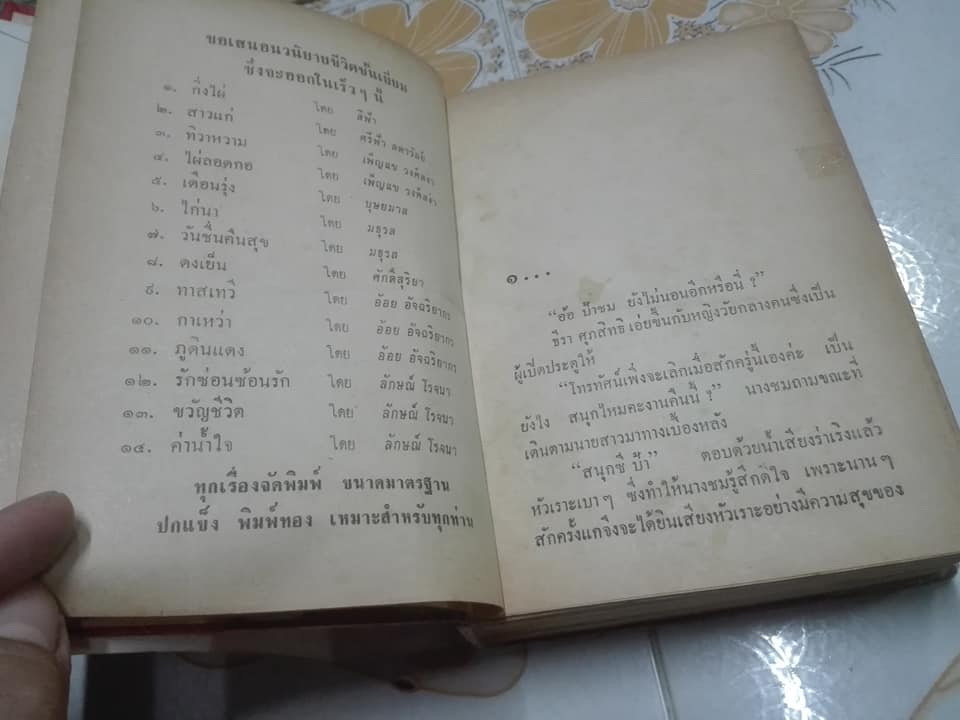 ขอเสนอนวนิยายชีวิตชั้นเยี่ยม
ซึ่งจะออกในเร็วๆ นี้
๑. กิ่งไผ่ โดย สีฟ้า
๒. สาวแก่ โดย ศรีฟ้า ลดาวัลย์
๓. ทิวาหวาม โดย เพ็ญแข วงศ์สง่า
๔. ไผ่ลอดกอ โดย เพ็ญแข วงศ์สง่า
๕. เดือนรุ่ง โดย บุษยมาส
๖. ไก่นา โดย มธุรส
๗. วันชื่นคืนสุข โดย มธุรส
๘. ดงเย็น โดย ศักดิ์สุริยา
๙. ทาสเทวี โดย อ้อย อัจฉริยากร
๑๐. กาเหว่า โดย อ้อย อัจฉริยากร
๑๑. ภูดินแดง โดย อ้อย อัจฉริยากร
๑๒. รักซ่อนซ้อนรัก โดย ลักษณ์ โรจนา
๑๓. ขวัญชีวิต โดย ลักษณ์ โรจนา
๑๔. ค่าน้ำใจ โดย ลักษณ์ โรจนา
ทุกเรื่องจัดพิมพ์ ขนาดมาตรฐาน
ปกแข็ง พิมพ์ทอง เหมาะสำหรับทุกท่าน
๑...
“อ้อ ป้าชม ยังไม่นอนอีกหรือนี่ ?”
ธีรา ศุภสิทธิ์ เอ่ยขึ้นกับหญิงวัยกลางคนซึ่งเป็น
ผู้เปิดประตูให้
“โทรทัศน์เพิ่งจะเลิกเมื่อสักครู่นี้เองค่ะ เป็น
ยังไง สนุกไหมคะงานคืนนี้ ?” นางชมถามขณะที่
เดินตามนายสาวมาทางเบื้องหลัง
“สนุกซี ป้า” ตอบด้วยน้ำเสียงร่าเริงแล้ว
หัวเราะเบาๆ ซึ่งทำให้นางชมรู้สึกดีใจ เพราะนานๆ
สักครั้งแกจึงจะได้ยินเสียงหัวเราะอย่างมีความสุขของ